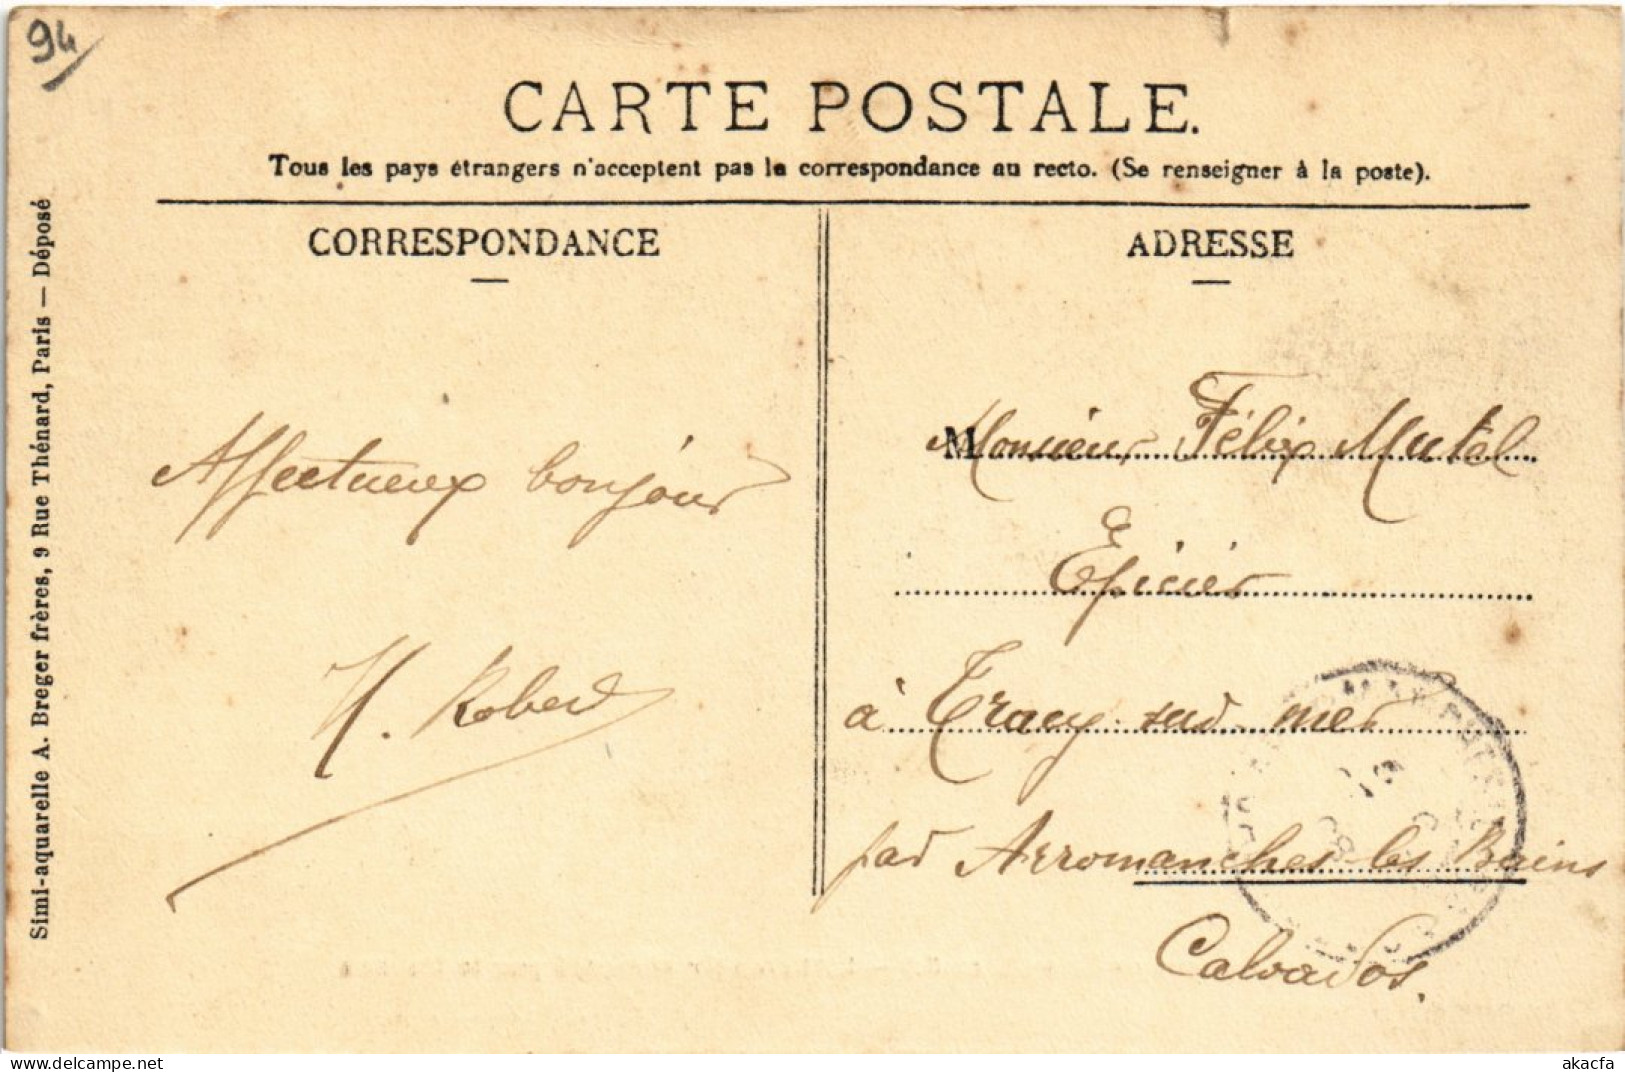 94
CARTE POSTALE.
Tous les pays étrangers n'acceptent pas la correspondance au recto. (Se renseigner à la poste).
CORRESPONDANCE
Affectueux bonjour
H. Robert
ADRESSE
Monsieur Félix Mutel
Epicier
à Tracy-sur-mer
par Arromanches-les-Bains
Calvados.
Simi-aquarelle A. Breger frères, 9 Rue Thénard, Paris — Déposé
www.delcampe.net
akacfa